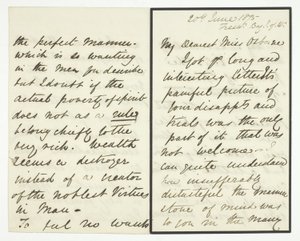 20th June
My Dearest Miss
I got yr long and
interesting letter. The
painful picture of
your disappts and
trials was the only
part of it that was
not welcome. I
can quite understand
how insufferably
distasteful the manner
& tone of mind was
to you in the many
the perfect manner
which is so wanting
in the men you describe
but I doubt if the
actual poverty of spirit
does not as a rule
belong chiefly to the
very rich. Wealth
seems a destroyer
instead of a creator
of the noblest Virtues
in Man -
To feel no wants